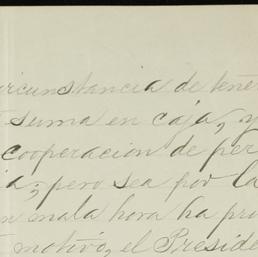 circunstancia de tene
suma en caja, y
cooperacion de per
a; pero sea por la
n mala hora ha pro
motivó, el Preside